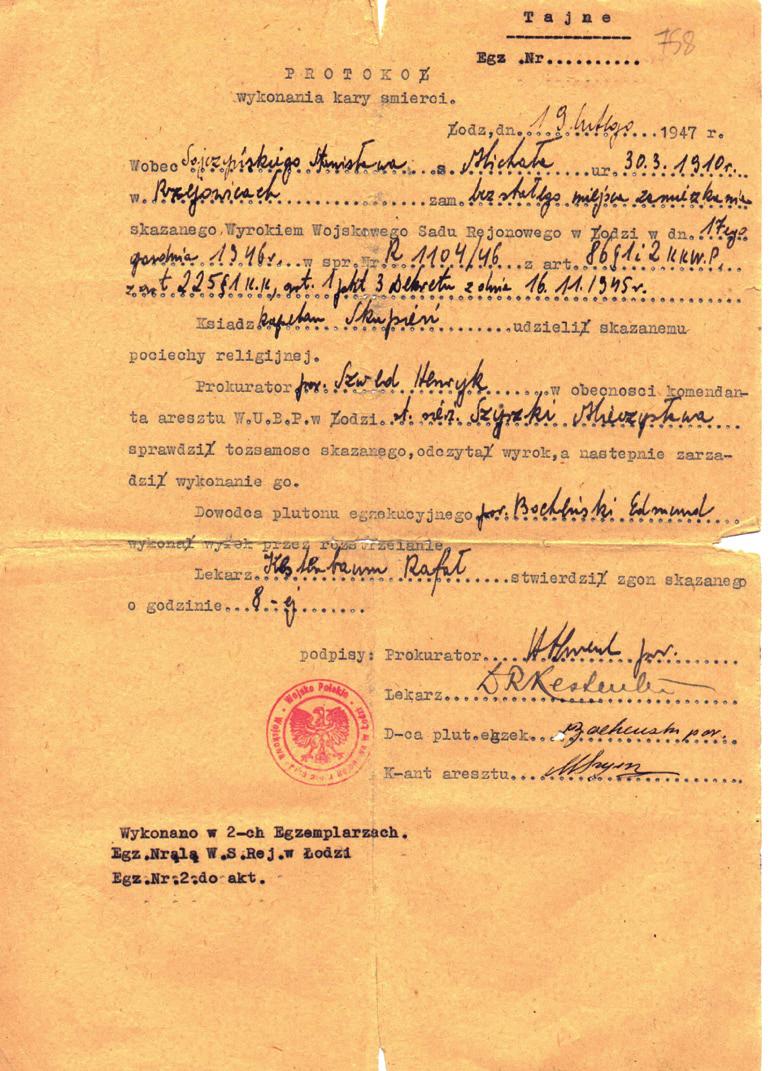 Tajne
758
Egz .Nr..........
PROTOKOŁ
wykonania kary smierci.
Łodz,dn. 19 lutego ...1947 r.
Wobec Sojczyńskiego Stanisława s. Michała ur. 30.3.1910r.
w. Rzejowicach zam. bez stałego miejsca zamieszkania
skazanego Wyrokiem Wojskowego Sadu Rejonowego w Łodzi w dn. 17-ego
grudnia 1946r. w spr.Nr R 1104/46 z art. 86§1 i 2 KKW.P.
z art 225§1 K.K, art. 1 pkt 3 Dekretu z dnia 16.11.1945r.
Ksiadz kapelan Skupień ......udzielił skazanemu
pociechy religijnej.
Prokurator por. Szwed Henryk ......w obecnosci komendan-
ta aresztu W.U.B.P.w Łodzi. Mieczysława
sprawdził tozsamosc skazanego,odczytał wyrok,a nastepnie zarza-
dził wykonanie go.
Dowodca plutonu egzekucyjnego por. Bocheński Edmund
wykonał wyrok przez rozstrzelanie
Lekarz Kestenbaum Rafał .....stwierdził zgon skazanego
o godzinie...8-ej.......
podpisy: Prokurator.... por.
Lekarz... DR Kestenb
D-ca plut.egzek... por.
K-ant aresztu...
Wojsko Polskie
Wykonano w 2-ch Egzemplarzach.
Egz.Nr W.S.Rej.w Łodzi
Egz.Nr.2.do akt.